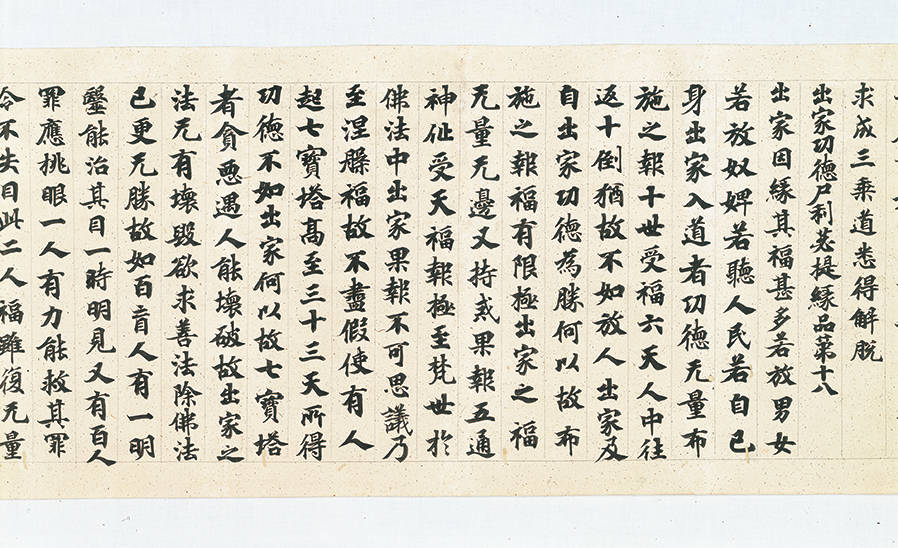 求成三乗道悉得解脱
出家功德尸利苾提縁品第十八
出家因縁其福甚多若放男女
若放奴婢若聽人民若自己
身出家入道者功德无量布
施之報十世受福六天人中往
返十倒猶故不如放人出家及
自出家功德為勝何以故布
施之報福有限極出家之福
无量无邊又持戒果報五通
神仙受天福報極至梵世於
佛法中出家果報不可思議乃
至涅槃福故不盡假使有人
起七寶塔高至三十三天所得
功德不如出家何以故七寶塔
者貪悪遇人能壞破故出家之
法无有壞毀欲求善法除佛法
已更无勝故如百盲人有一明
醫能治其目一時明見又有百人
罪應挑眼一人有力能救其罪
令不失目此二人福雖復无量